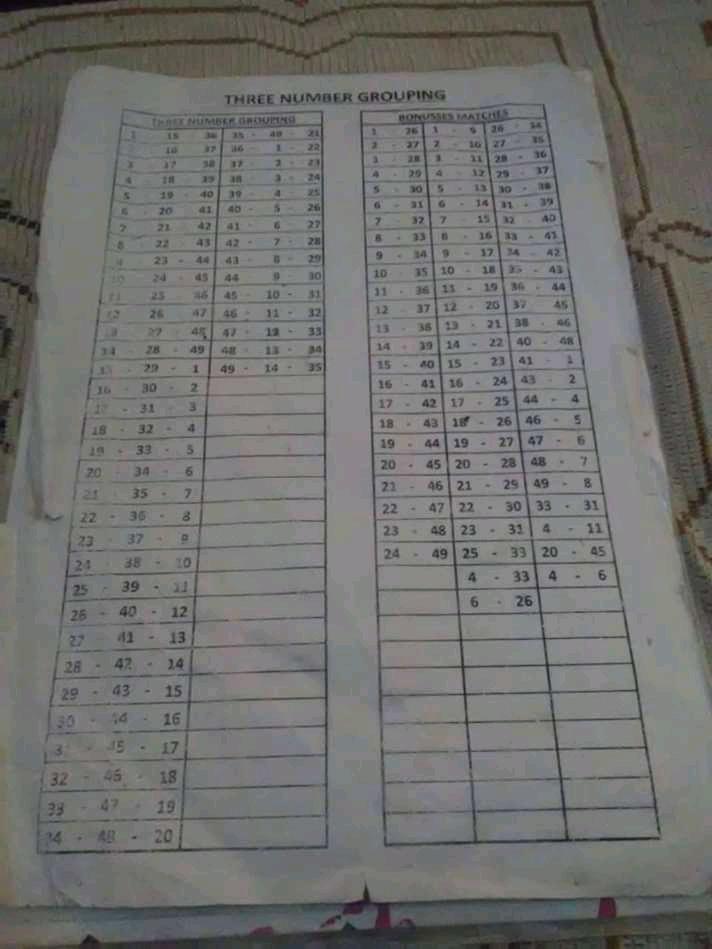 THREE NUMBER GROUPING
THREE NUMBER GROUPING
1 15 36 35 - 49 21
16 37 36 - 1 - 22
3 17 38 37 - 2 - 23
4 18 39 38 3 - 24
5 19 - 40 39 - 4 25
6 - 20 41 40 - 5 - 26
7 21 42 41 - 6 - 27
8 22 - 43 42 - 7 - 28
23 - 44 43 - 8 - 29
24 - 45 44 9 - 30
25 46 45 - 10 - 31
26 47 46 - 11 - 32
27 - 48 47 - 12 - 33
14 - 28 - 49 48 - 13 - 34
15 - 29 - 1 49 - 14 - 35
16 - 30 - 2
17 - 31 - 3
18 - 32 - 4
19 - 33 - 5
20 - 34 - 6
21 - 35 - 7
22 - 36 - 8
23 - 37 - 9
24 - 38 - 10
25 - 39 - 11
26 - 40 - 12
27 - 41 - 13
28 - 42 - 14
29 - 43 - 15
30 - 44 - 16
45 - 17
32 - 46 - 18
33 - 47 - 19
34 - 48 - 20
BONUSSES MATCHES
1 - 26 1 - 9 26 - 34
2 - 27 2 - 10 27 - 35
3 - 28 3 - 11 28 - 36
4 - 29 4 - 12 29 - 37
5 - 30 5 - 13 30 - 38
6 - 31 6 - 14 31 - 39
7 32 7 - 15 32 - 40
8 - 33 8 - 16 33 - 41
9 - 34 9 - 17 34 - 42
10 - 35 10 - 18 35 - 43
11 - 36 11 - 19 36 - 44
12 - 37 12 - 20 37 45
13 - 38 13 - 21 38 - 46
14 - 39 14 - 22 40 - 48
15 - 40 15 - 23 41 - 1
16 - 41 16 - 24 43 - 2
17 - 42 17 - 25 44 - 4
18 - 43 18 - 26 46 - 5
19 - 44 19 - 27 47 - 6
20 - 45 20 - 28 48 - 7
21 - 46 21 - 29 49 - 8
22 - 47 22 - 30 33 - 31
23 - 48 23 - 31 4 - 11
24 - 49 25 - 33 20 - 45
4 - 33 4 - 6
6 - 26